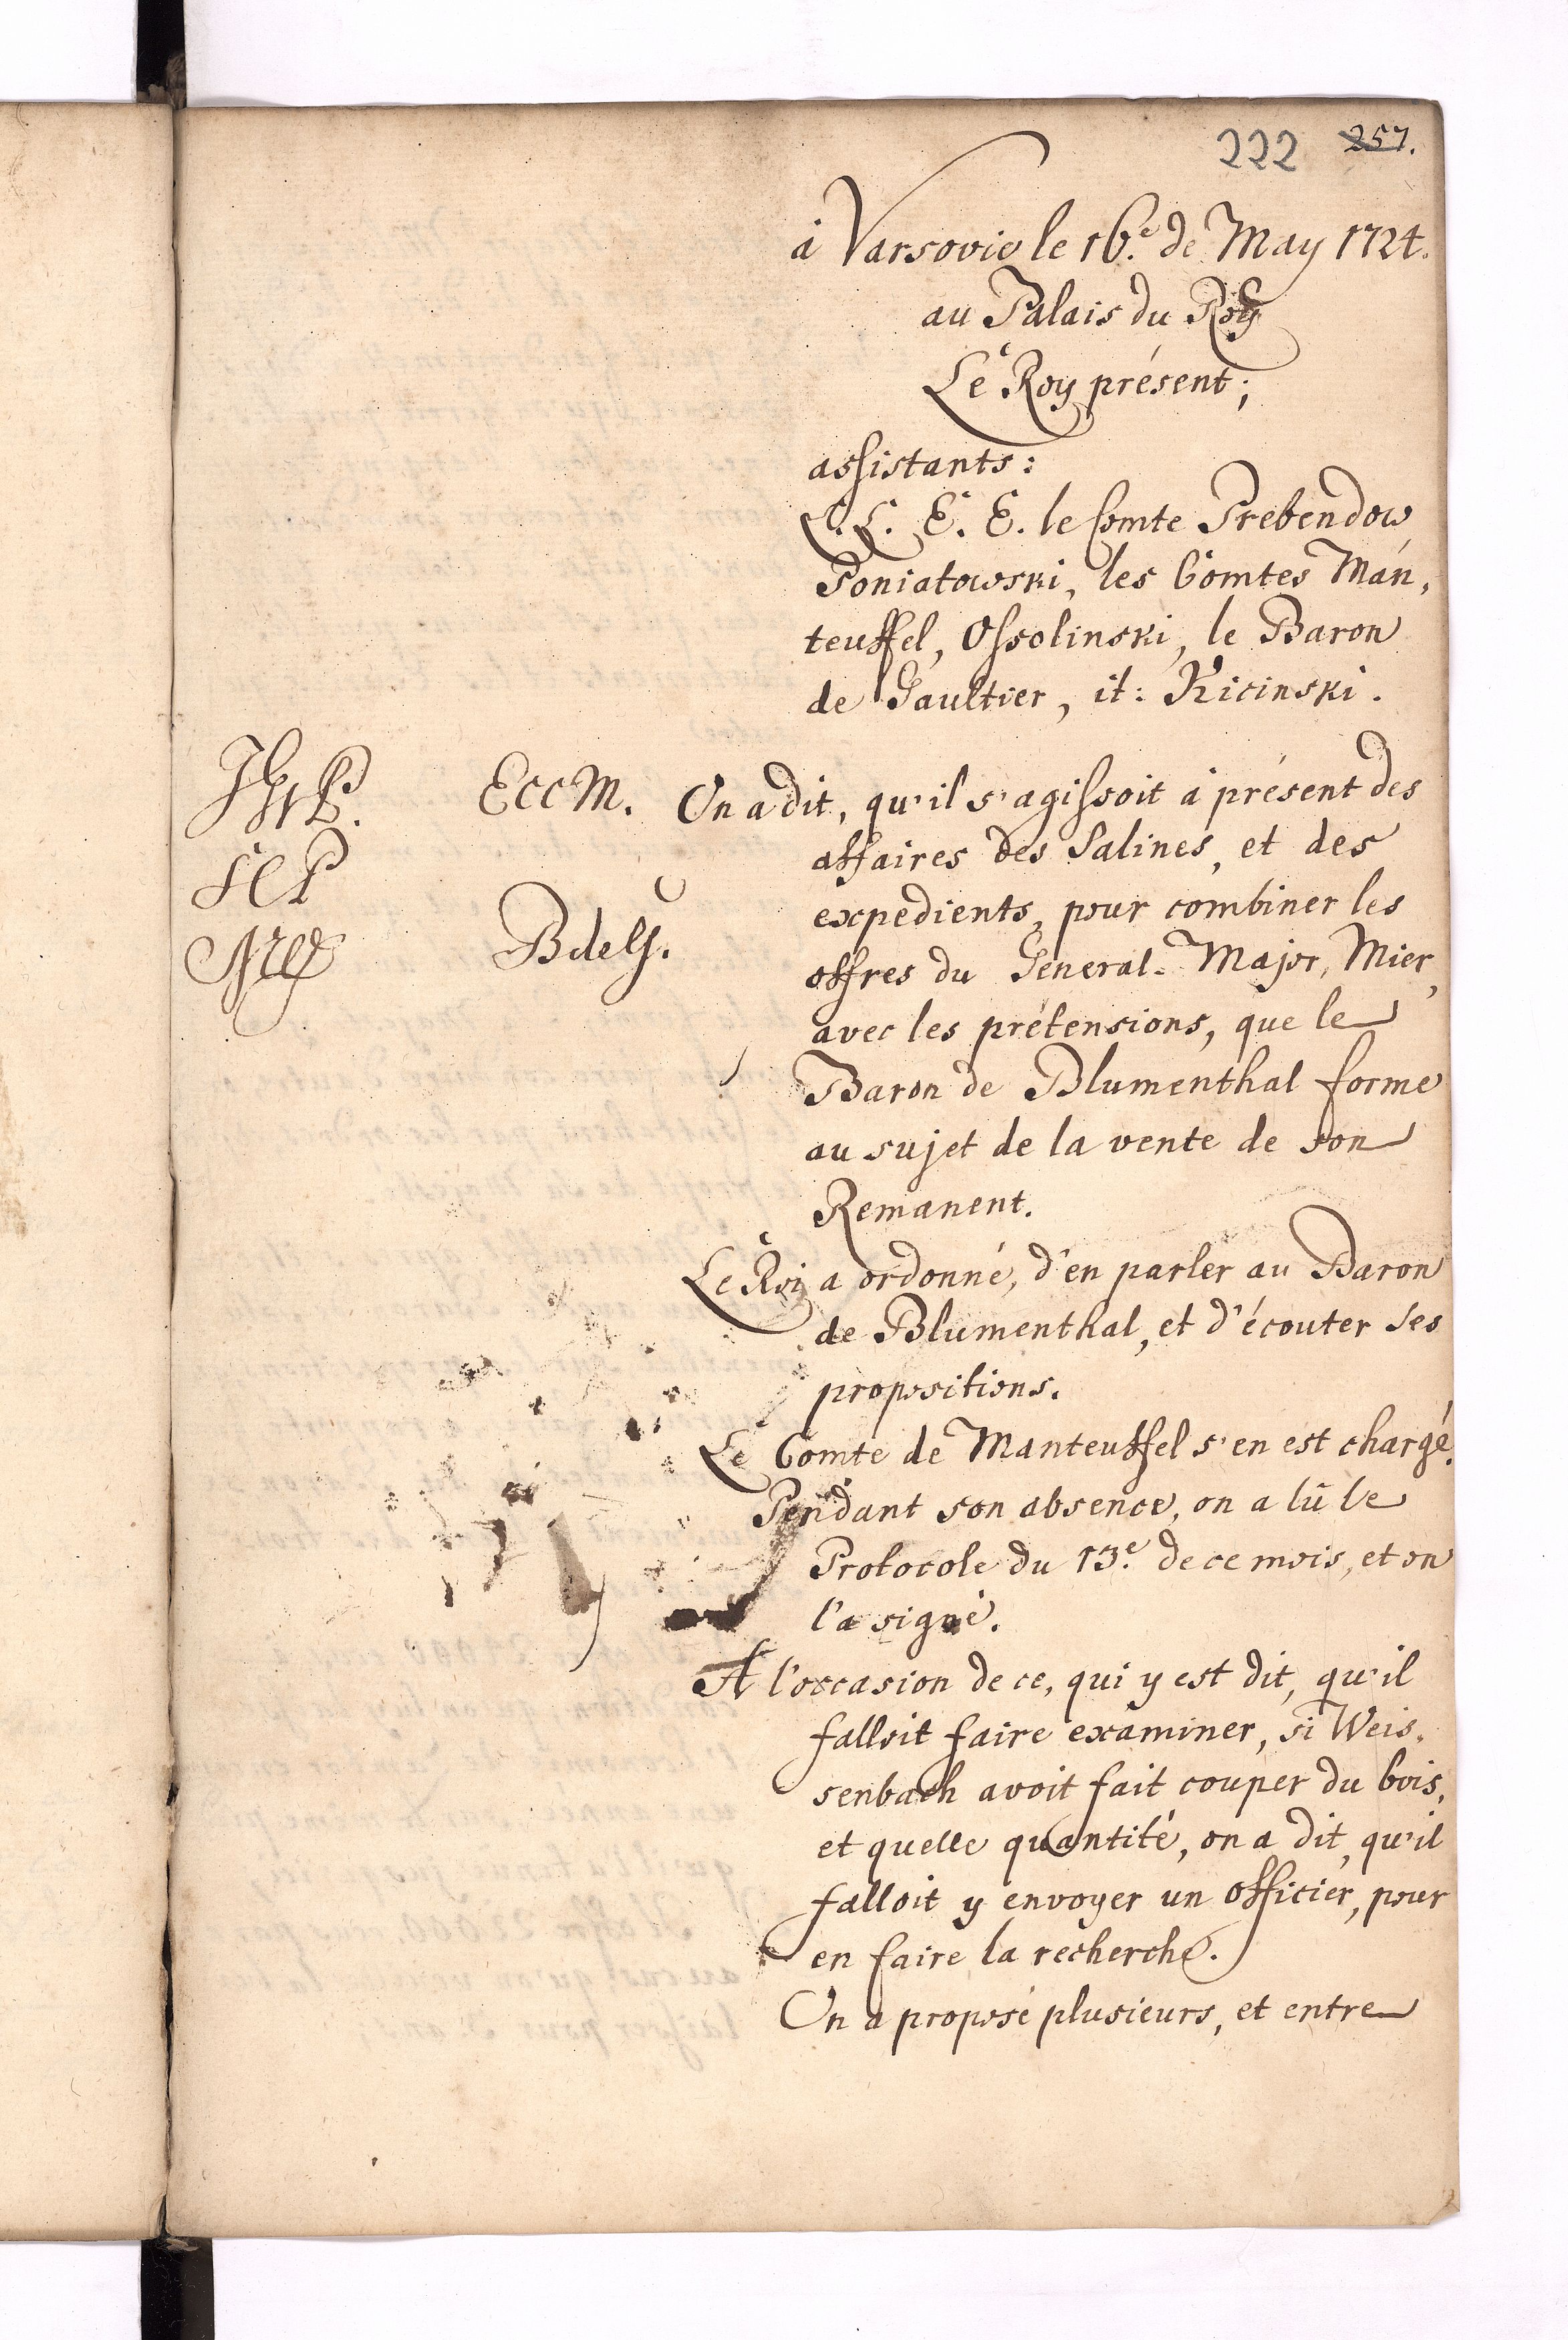 222 257.
à Varsovie le 16.e de May 1724.
au Palais du Roy
Le Roy présent;
assistants:
L. L. E. E. le Comte Prebendow
Poniatowski, les Comtes Man,
teuffel, Ossolinski, le Baron
de Gaultier, it: Kicinski.
ECCM. On a dit, qu'il s'agissoit à présent des
affaires des Salines, et des
expedients, pour combiner les
Bdels.
offres du General-Major, Mier,
avec les prétensions, que le
Baron de Blumenthal forme
au sujet de la vente de son
Remanent.
Le Roi a ordonné, d'en parler au Baron
de Blumenthal, et d'écouter ses
propositions.
Le Comte de Manteuffel s'en est chargé.
Pendant son absence, on a lû le
Protocole du 13.e de ce mois, et on
l'a signé.
A l'occasion de ce, qui y est dit, qu'il
falloit faire examiner, si Weis,
senbach avoit fait couper du bois,
et quelle quantité, on a dit, qu'il
falloit y envoyer un officier, pour
en faire la recherche.
On a proposé plusieurs, et entre